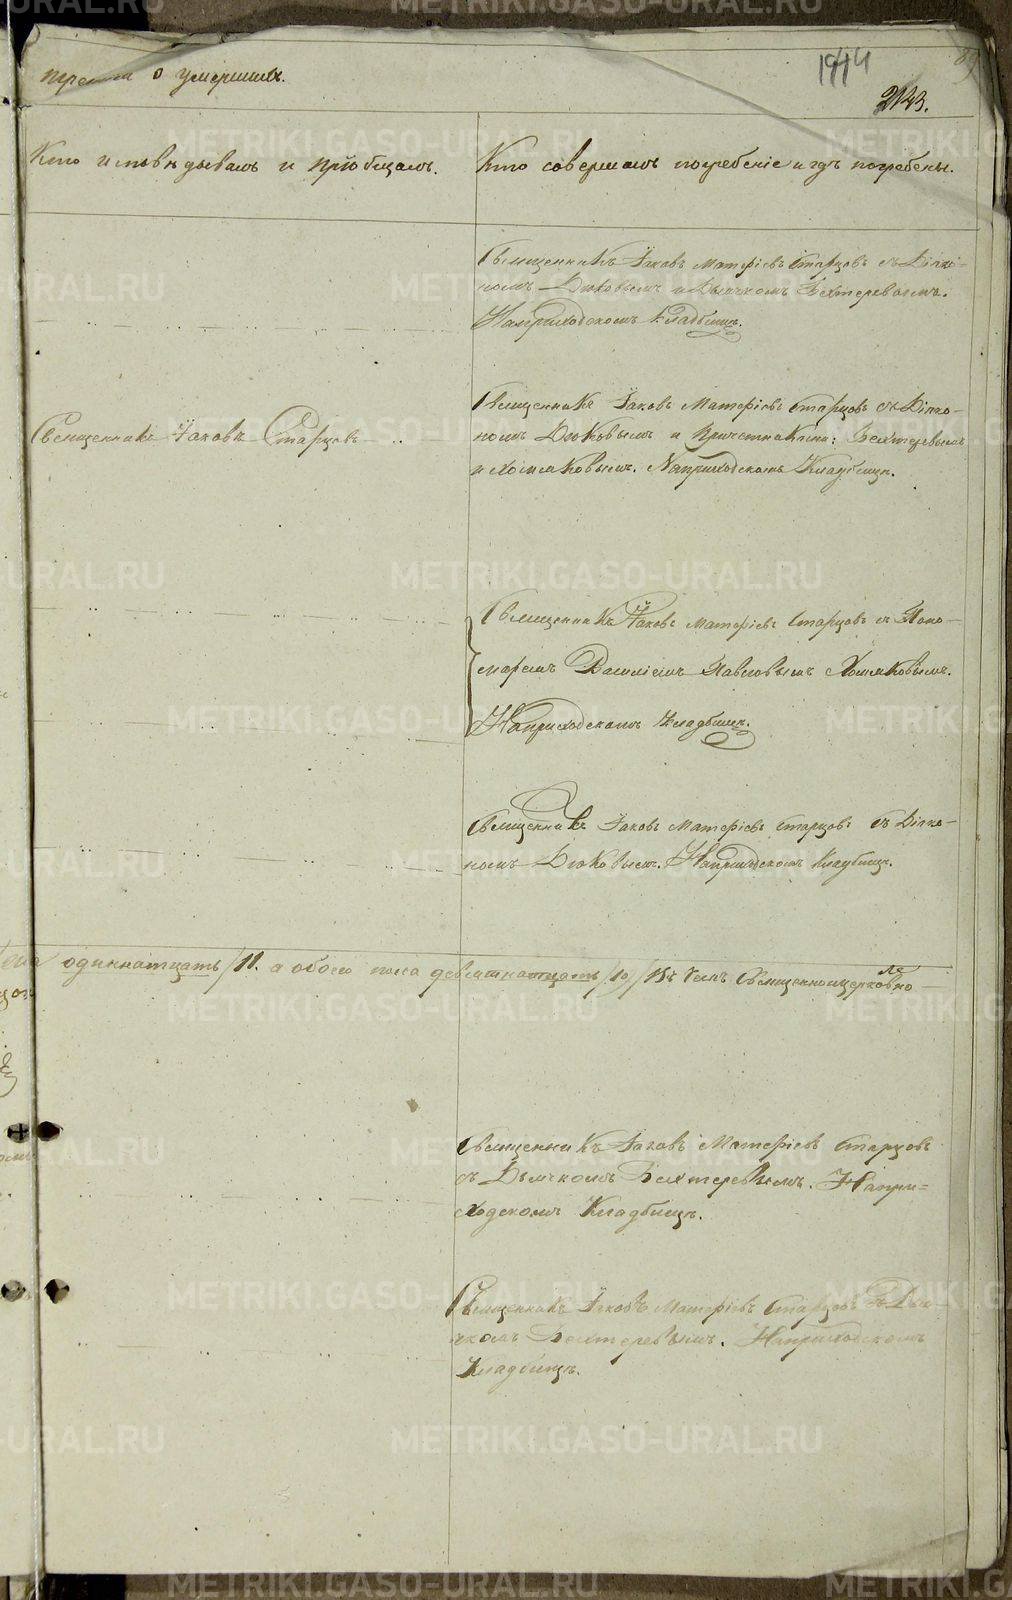 третья о умершихъ.
1914
89
243.
Кто исповѣдывалъ и пріобщалъ.
Кто совершалъ погребеніе и гдѣ погребены.
Священникъ Іаковъ Матѳіевъ Старцовъ съ Діяко-
номъ Дюковымъ и Дьячкомъ Бехтеревымъ.
На приходскомъ Кладбищѣ.
Священникъ Іаковъ Старцовъ
Священникъ Іаковъ Матѳіевъ Старцовъ съ Діяко-
номъ Дюковымъ и Причетниками: Бехтеревымъ
и Хомяковымъ. На приходскомъ Кладбищѣ.
Священникъ Іаковъ Матѳіевъ Старцовъ съ Поно-
маремъ Василіемъ Павловымъ Хомяковымъ.
На приходскомъ Кладбищѣ.
Священникъ Іаковъ Матѳіевъ Старцовъ съ Діяко-
номъ Дюковымъ. На приходскомъ Кладбищѣ.
одиннатцать /11. а обоего пола девятнатцать /19/ въ чемъ Священноцерковно-
Священникъ Іаковъ Матѳіевъ Старцовъ
съ Дьячкомъ Бехтеревымъ. На при-
ходскомъ Кладбищѣ.
Священникъ Іаковъ Матѳіевъ Старцовъ съ Дья-
чкомъ Бехтеревымъ. На приходскомъ
Кладбищѣ.
METRIKI.GASO-URAL.RU